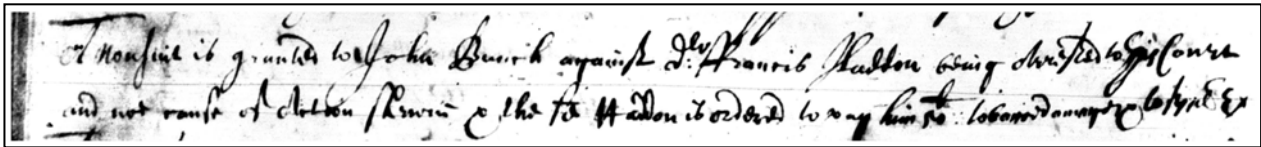 A nonsuit is granted to John Bunch against Dr. Francis Haddon being arrested to this Court
and not cause of Action shewn & the sd Haddon is ordered to pay him 50 lb tobacco damage & costs Ex